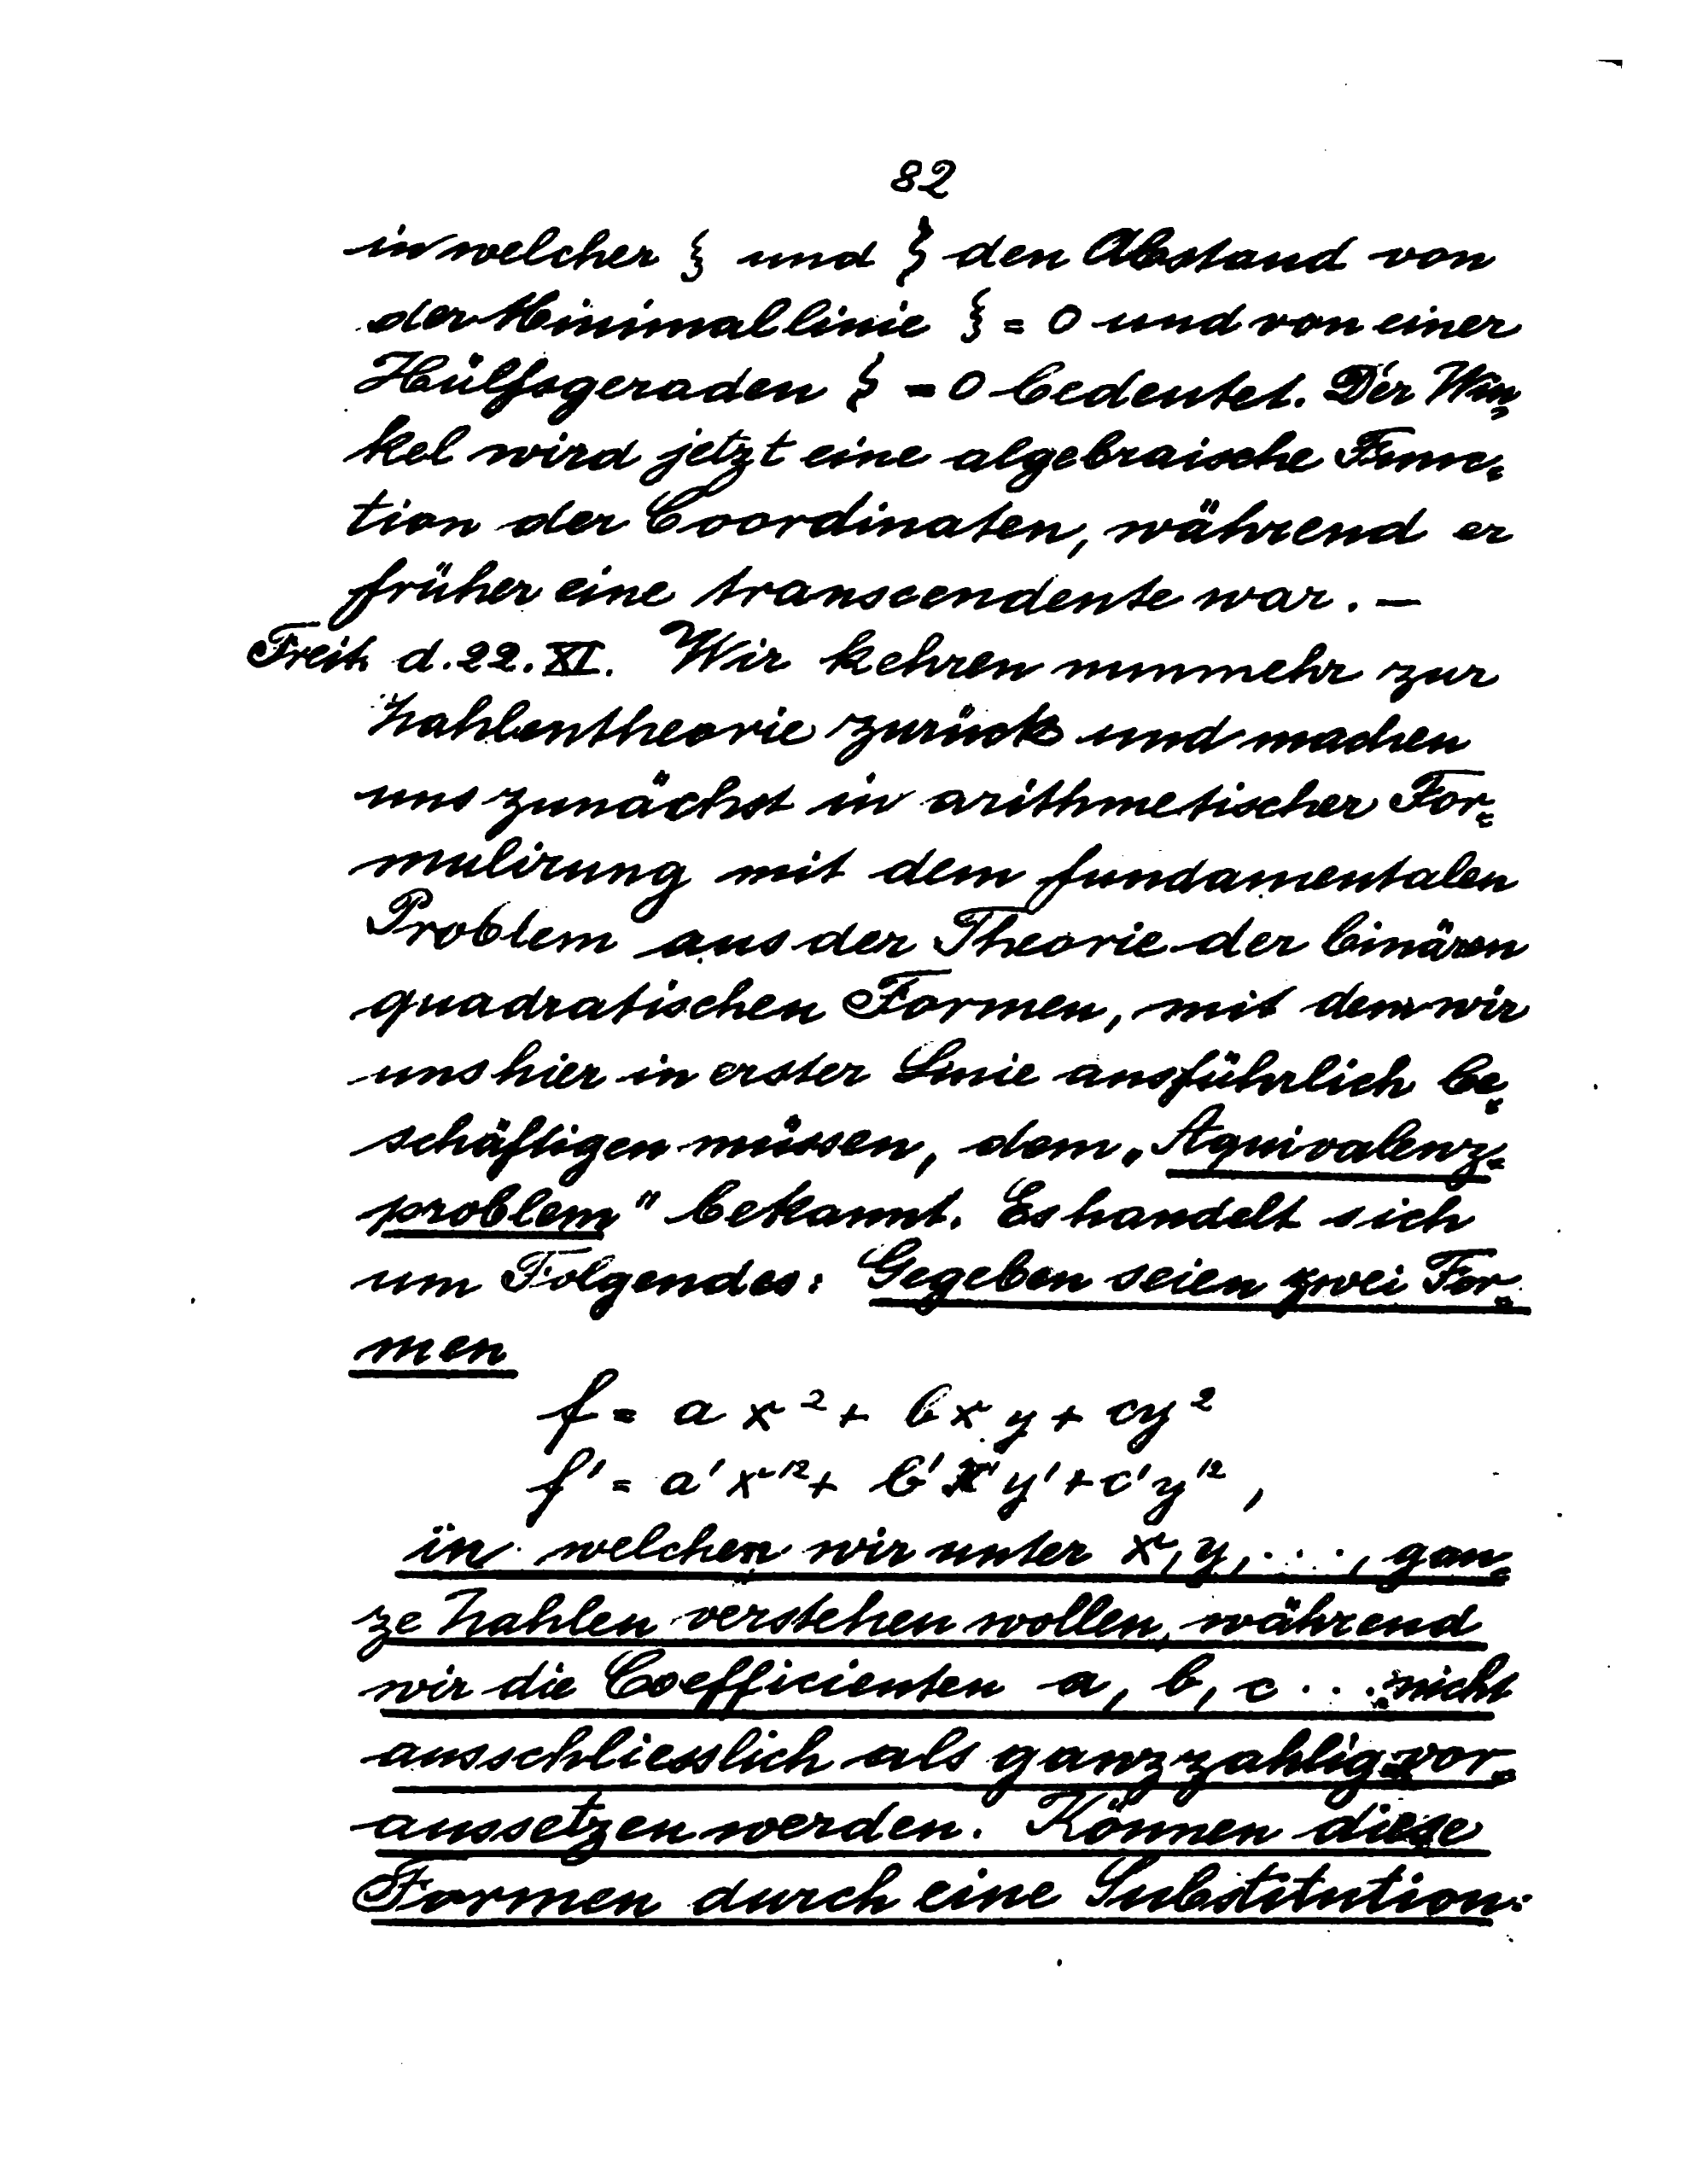 82
in welcher ξ und ζ den Abstand von
der Minimallinie ξ = 0 und von einer
Hülfsgeraden ζ = 0 bedeutet. Der Win-
kel wird jetzt eine algebraische Func-
tion der Coordinaten, während er
früher eine transcendente war. —
Freit. d. 22. XI. Wir kehren nunmehr zur
Zahlentheorie zurück und machen
uns zunächst in arithmetischer For-
mulirung mit dem fundamentalen
Problem aus der Theorie der binären
quadratischen Formen, mit dem wir
uns hier in erster Linie ausführlich be-
schäftigen müssen, dem „Äquivalenz-
problem" bekannt. Es handelt sich
um Folgendes: Gegeben seien zwei For-
men
f = a x² + b x y + cy²
f' = a' x'² + b' x' y' + c' y'²,
in welchen wir unter x, y, ..., gan-
ze Zahlen verstehen wollen, während
wir die Coefficienten a, b, c ... nicht
ausschliesslich als ganzzahlig vor-
aussetzen werden. Können diese
Formen durch eine Substitution: